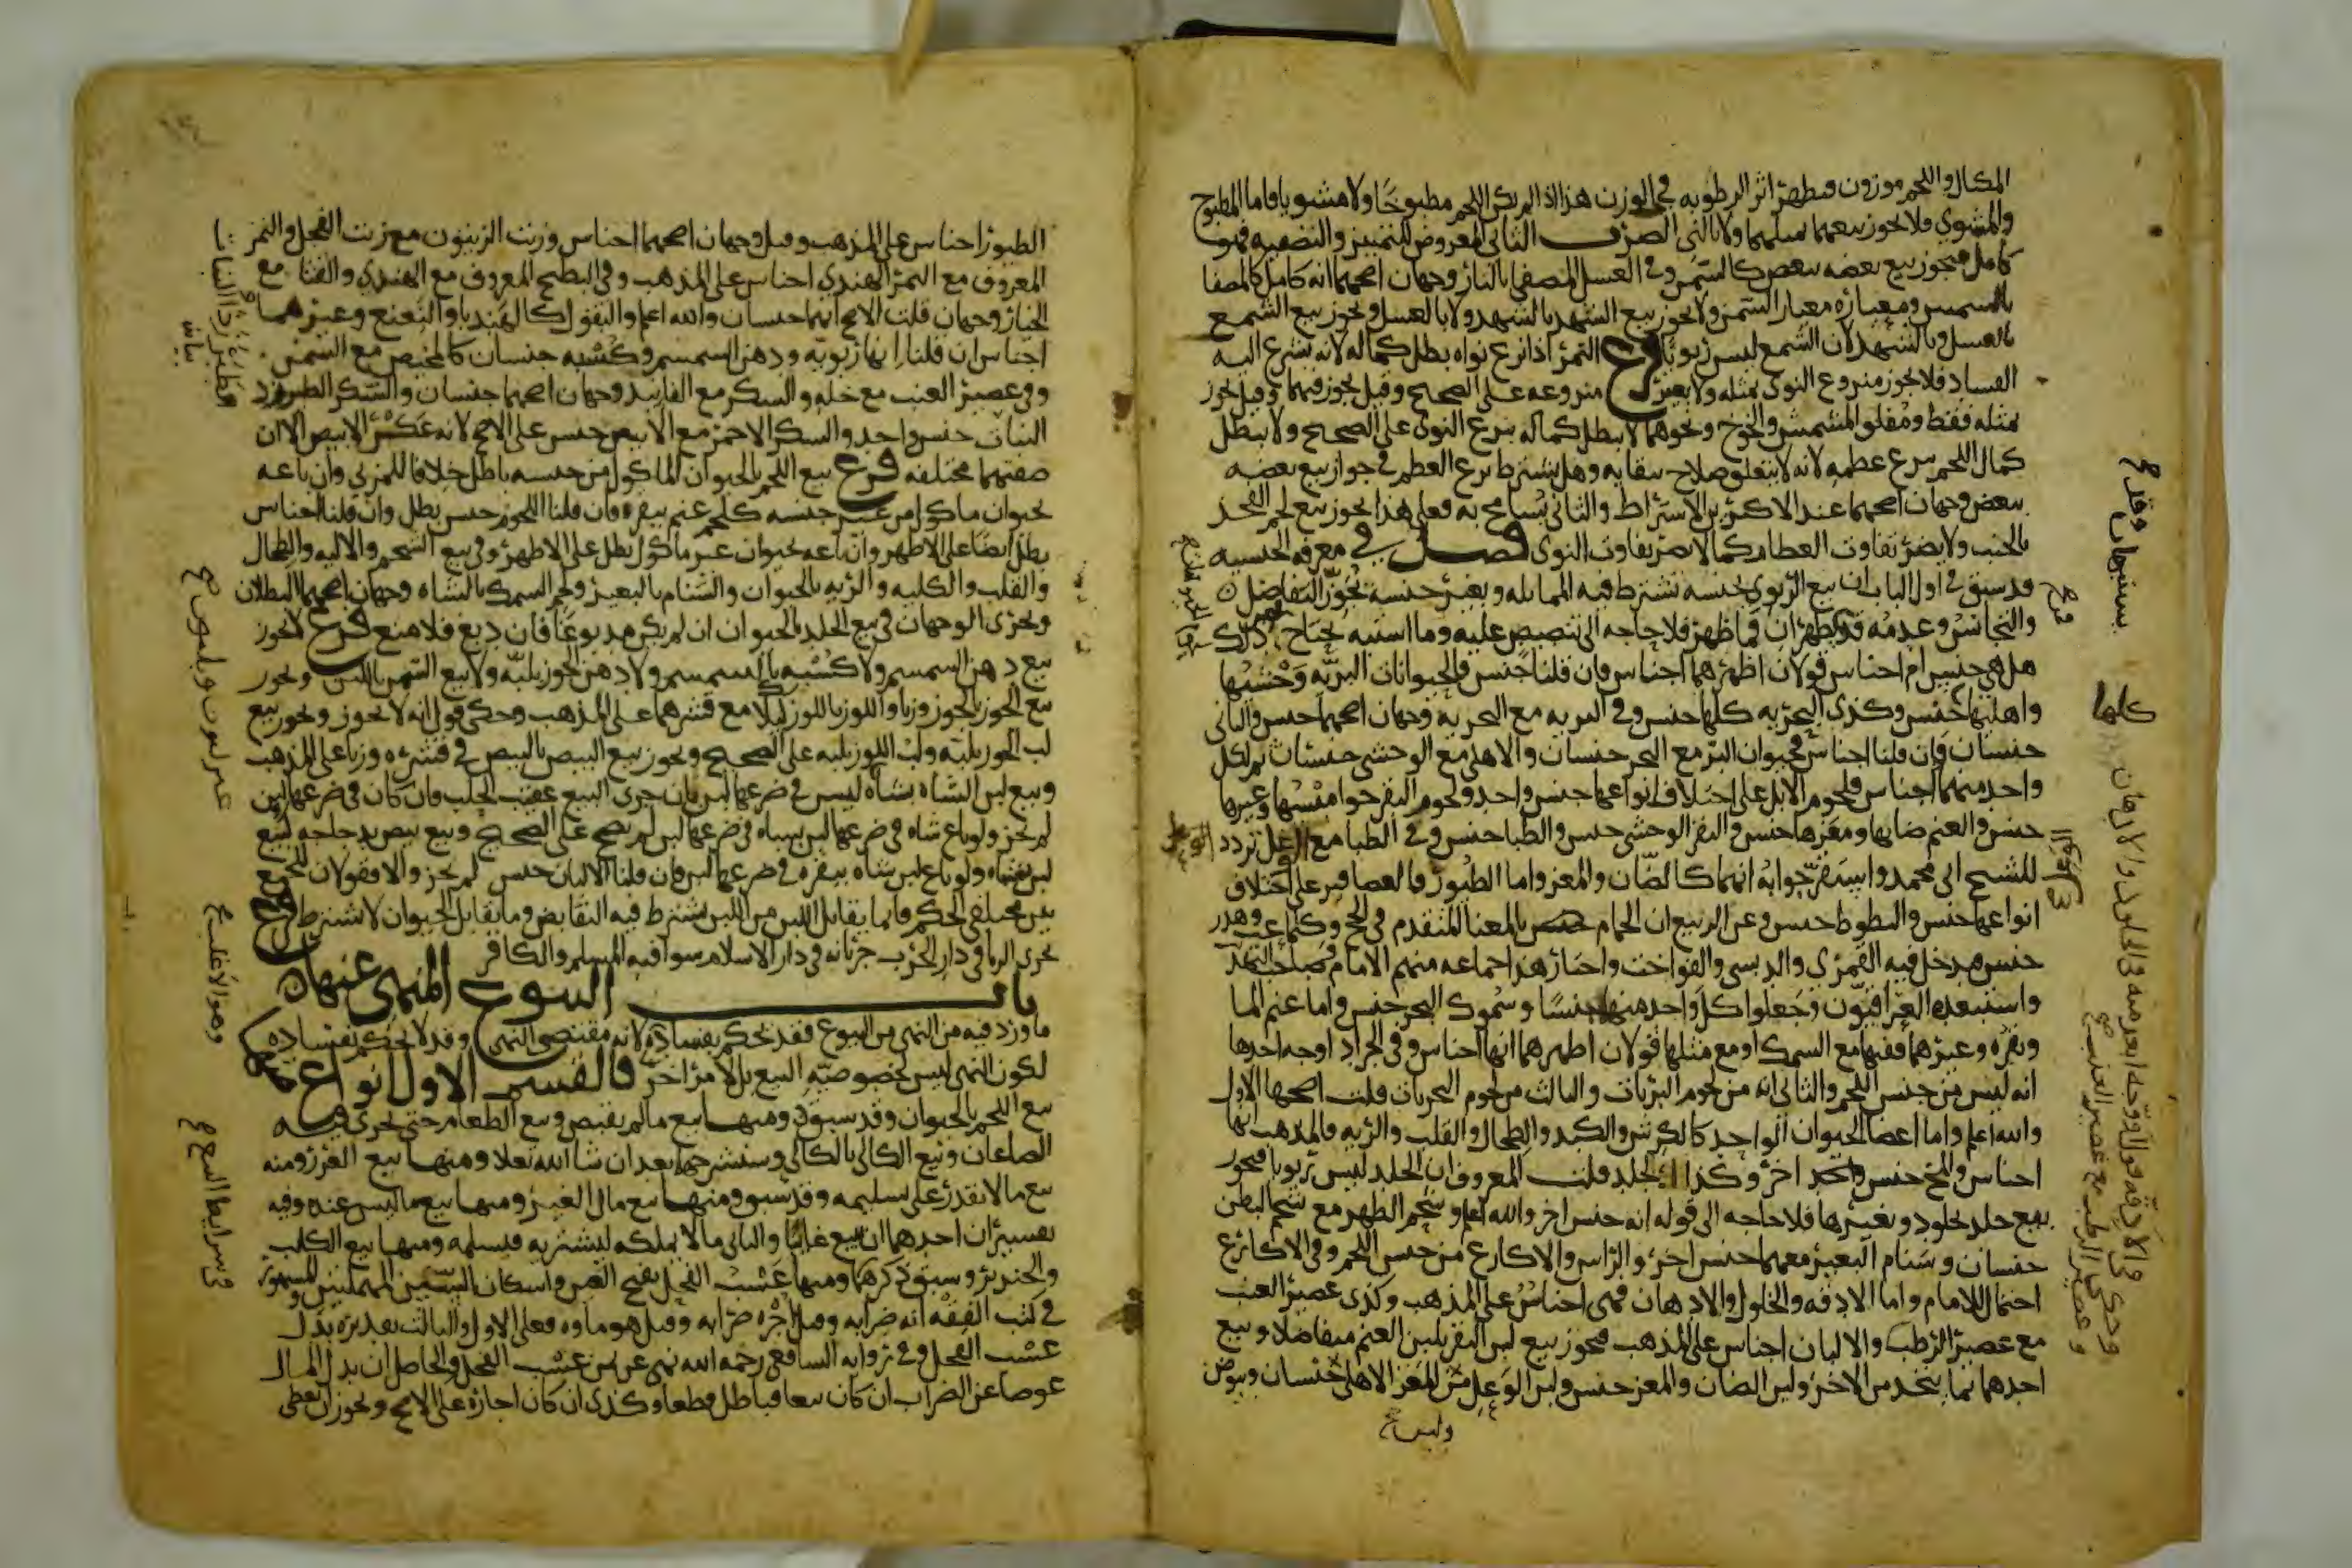 المكيال واللحم موزون فيظهر اثر الرطوبه في الوزن هذا اذا لم يكن اللحم مطبوخا ولا مشويا فاما المطبوخ
والمشوي فلا يجوز بيعهما بمثلهما ولا بالني الضرب الثاني المعروض للتمييز والتصفيه فهو
كامل فيجوز بيع بعضه ببعض كالسمن وفي العسل المصفى بالنار وجهان اصحهما انه كامل كالمصفا
بالشمس ومعياره معيار السمن ولا يجوز بيع الشهد بالشهد ولا بالعسل ويجوز بيع الشمع
بالعسل وبالشهد لان الشمع ليس ربويا فرع التمر اذا نزع نواه بطل كماله لانه يسرع اليه
الفساد فلا يجوز منزوع النوى بمثله ولا بغير منزوعه على الصحيح وقيل يجوز فيهما وقيل يجوز
بمثله فقط ومفلق المشمش والخوخ ونحوهما لا يبطل كماله بنزع النوى على الصحيح ولا يبطل
كمال اللحم بنزع عظمه لانه لا يتعلق صلاح ببقايه وهل يشترط نزع العظم في جواز بيع بعضه
ببعض وجهان اصحهما عند الاكثرين الاشتراط والثاني يسامح به فعلى هذا يجوز بيع لحم الفخذ
بالجنب ولا يضر تفاوت العظام كما لا يضر تفاوت النوى فصل في معرفة الجنسيه
قد سبق في اول الباب ان بيع الربوي بجنسه يشترط فيه المماثله وبغير جنسه يجوز التفاضل
والتجانس وعدمه قد يظهران فما ظهر فلا حاجه الى تنصيص عليه وما اشتبه يحتاج
هل هي جنس ام اجناس قولان اظهرهما اجناس فان قلنا جنس فالحيوانات البريه وحشيها
واهليها جنس وكذى البحريه كلها جنس وفي البريه مع البحريه وجهان اصحهما جنس والثاني
جنسان وان قلنا اجناس فحيوان البر مع البحر جنسان والاهلي مع الوحشي جنسان ثم لكل
واحد منهما اجناس فلحوم الابل على اختلاف انواعها جنس واحد ولحوم البقر جواميسها وغيرها
جنس والغنم ضانها ومعزها جنس والبقر الوحشي جنس والظبا جنس وفي الظبا مع الابل تردد
للشيخ ابي محمد واستقر جوابه انهما كالضان والمعز واما الطيور فالعصافير على اختلاف
انواعها جنس والبطوط جنس وعن الربيع ان الحمام جنس بالمعنا المتقدم في الحج وكلما عب وهدر
جنس فيدخل فيه القمري والدبسي والفواخت واختار هذا جماعه منهم الامام وصاحب التهذيب
واستبعده العراقيون وجعلوا كل واحد منها جنسا وسموك البحر جنس واما غنم الما
وبقره وغيرهما ففيها مع السمك او مع مثلها قولان اظهرهما انها اجناس وفي الجراد اوجه احدها
انه ليس من جنس اللحم والثاني انه من لحوم البريات والثالث من لحوم البحريات قلت اصحها الاول
والله اعلم واما اعضا الحيوان الواحد كالكرش والكبد والطحال والقلب والريه فالمذهب انها
اجناس والمخ جنس اخر وكذا الجلد قلت المعروف ان الجلد ليس ربويا فيجوز
بيع جلد بجلود وبغيرها فلا حاجه الى قوله انه جنس اخر والله اعلم وشحم الظهر مع شحم البطن
جنسان وسنام البعير معهما جنس اخر والراس والاكارع من جنس اللحم وفي الاكارع
احتمال للامام واما الادقه والخلول والادهان فهي اجناس على المذهب وكذى عصير العنب
مع عصير الرطب والالبان اجناس على المذهب فيجوز بيع لبن البقر بلبن الغنم متفاضلا وبيع
احدهما بما يتخذ من الاخر ولبن الضان والمعز جنس ولبن الوعل مع المعز الاهلي جنسان وبيوض
كلها
الطيور اجناس على المذهب وقيل وجهان اصحهما اجناس وزيت الزيتون مع زيت الفجل والتمر
المعروف مع التمر الهندي اجناس على المذهب وفي البطيخ المعروف مع الهندي والقثا مع
الخيار وجهان قلت الاصح انهما جنسان والله اعلم والبقول كالهندبا والنعنع وغيرهما
اجناس ان قلنا انها ربويه ودهن السمسم وكسبه جنسان كالمخيض مع السمن
وفي عصير العنب مع خله والسكر مع الفانيد وجهان اصحهما جنسان والسكر الطبرزد
النبات جنس واحد والسكر الاحمر مع الابيض جنس على الاصح لانه عكر الابيض الا ان
صفتهما مختلفه فرع بيع اللحم بالحيوان الماكول من جنسه باطل خلافا للمزني وان باعه
بحيوان ماكول من غير جنسه كلحم غنم ببقره فان قلنا اللحوم جنس بطل وان قلنا اجناس
بطل ايضا على الاظهر وان باعه بحيوان غير ماكول بطل على الاظهر وفي بيع الشحم والاليه والطحال
والقلب والكليه والريه بالحيوان والسنام بالبعير ولحم السمك بالشاه وجهان اصحهما البطلان
ويجري الوجهان في بيع الجلد بالحيوان ان لم يكن مدبوغا فان دبغ فلا منع فرع لا يجوز
بيع دهن السمسم ولا كسبه بالسمسم ولا دهن الجوز بلبه ولا بيع السمن باللبن ويجوز
بيع الجوز بالجوز وزنا واللوز باللوز كيلا مع قشرهما على المذهب وحكي قول انه لا يجوز ويجوز بيع
لب الجوز بلبه ولب اللوز بلبه على الصحيح ويجوز بيع البيض بالبيض في قشره وزنا على المذهب
وبيع لبن الشاه بشاه ليس في ضرعها لبن بان جرى البيع عقيب الحلب فان كان في ضرعها لبن
لم يجز ولو باع شاه في ضرعها لبن بشاه في ضرعها لبن لم يصح على الصحيح وبيع بيض بدجاجه كبيع
لبن بشاه ولو باع لبن شاه ببقره في ضرعها لبن فان قلنا الالبان جنس لم يجز والا فقولان للجمع
بين مختلفي الحكم فانما يقابل اللبن من اللبن يشترط فيه التقابض وما يقابل الحيوان لا يشترط فرع
يجري الربا في دار الحرب جريانه في دار الاسلام سوا فيه المسلم والكافر
باب البيوع المنهي عنها
ما ورد فيه من النهي من البيوع فقد يحكم بفساده لانه مقتضى النهي وقد لا يحكم بفساده
لكون النهي ليس لخصوصيه البيع بل لامر اخر فالقسم الاول انواع منها
بيع اللحم بالحيوان وقد سبق ومنها بيع ما لم يقبض وبيع الطعام حتى يجري فيه
الصاعان وبيع الكالي بالكالي وستشرحها بعد ان شا الله تعلا ومنها بيع الغرر ومنه
بيع ما لا يقدر على تسليمه وقد سبق ومنها بيع مال الغير ومنها بيع ما ليس عنده وفيه
تفسيران احدهما ان يبيع غايبا والثاني ما لا يملكه ليشتريه فيسلمه ومنها بيع الكلب
والخنزير وسبق ذكرهما ومنها عسب الفحل بفتح العين واسكان السين المهملتين والمشهور
في كتب الفقه انه ضرابه وقيل اجره ضرابه وقيل هو ماوه فعلى الاول والثالث تقديره بدل
عسب الفحل وفي روايه الشافعي رحمه الله نهى عن ثمن عسب الفحل والحاصل ان بدل المال
عوضا عن الضراب ان كان بيعا فباطل قطعا وكذى ان كان اجاره على الاصح ويجوز ان يعطي